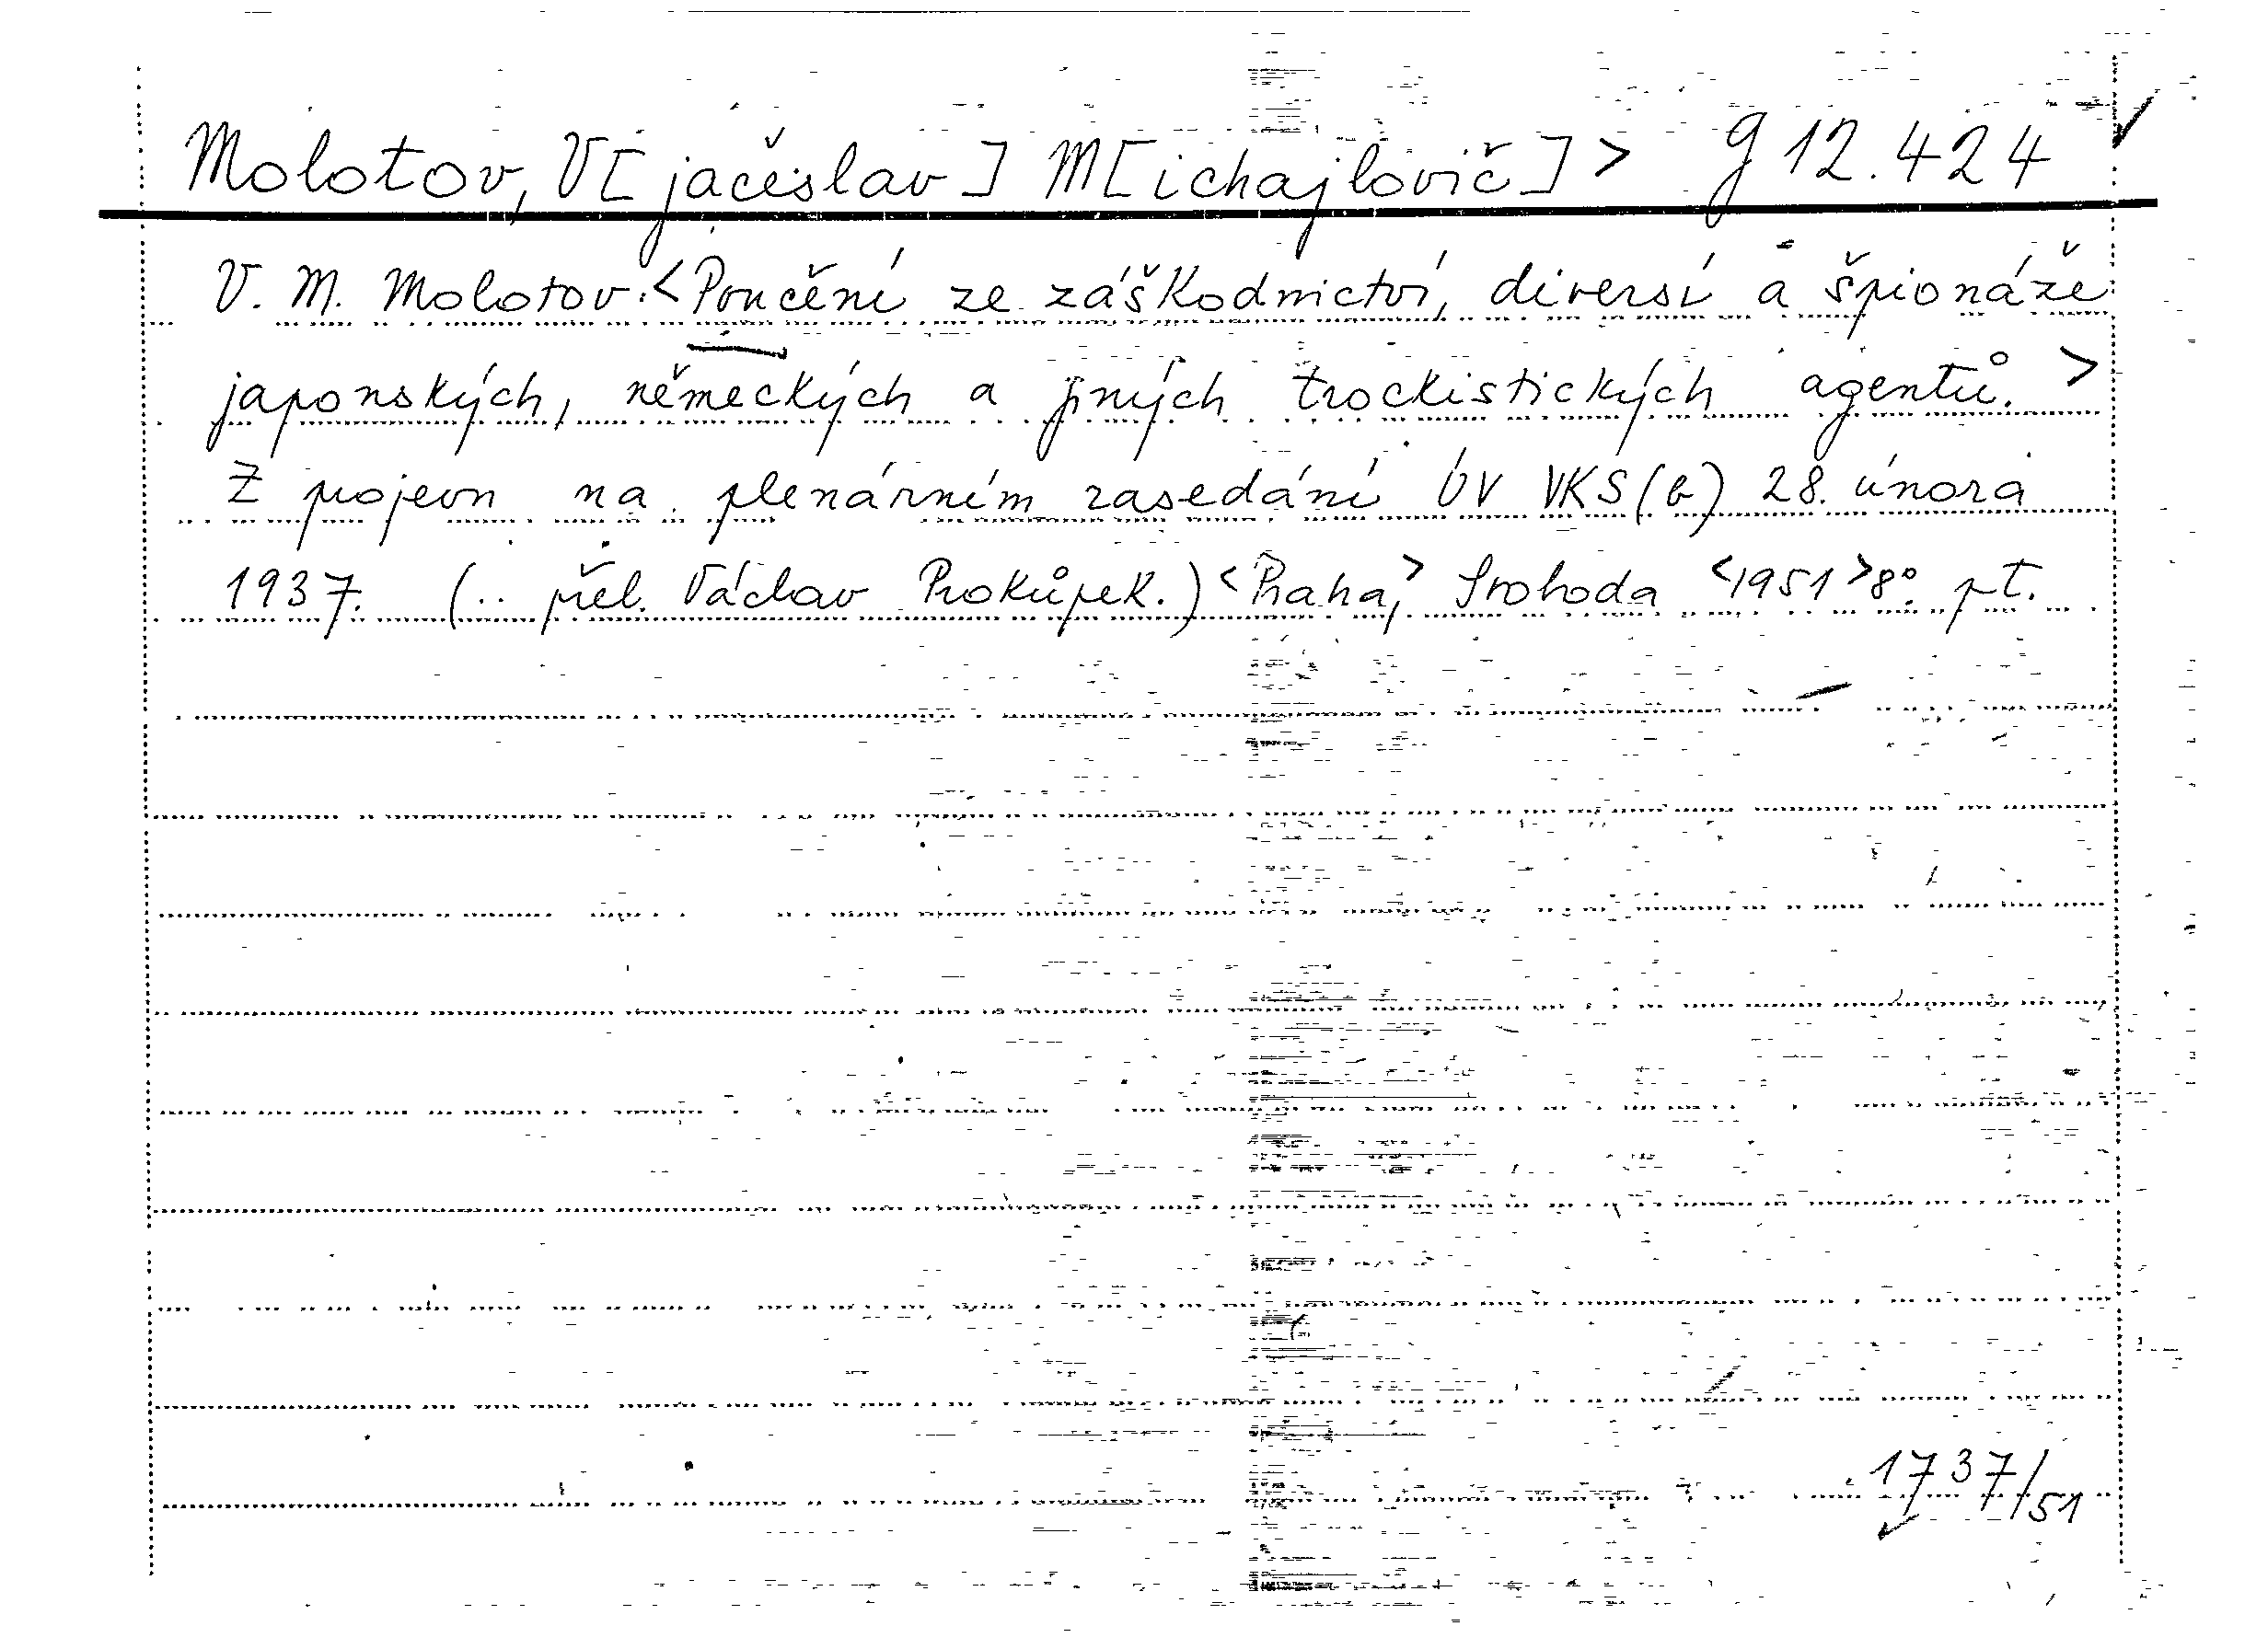 Molotov, V[jačeslav] M[ichajlovič]> g 12.424
V. M. Molotov:<Poučení ze záškodnictví, diversí a špionáže
japonských, německých a jiných trockistických agentů.>
Z projevu na plenárním zasedání ÚV VKS(b) 28. února
1937. (.. přel. Václav Prokůpek.) <Praha,> Svoboda <1951> 8°. pt.
1737/51